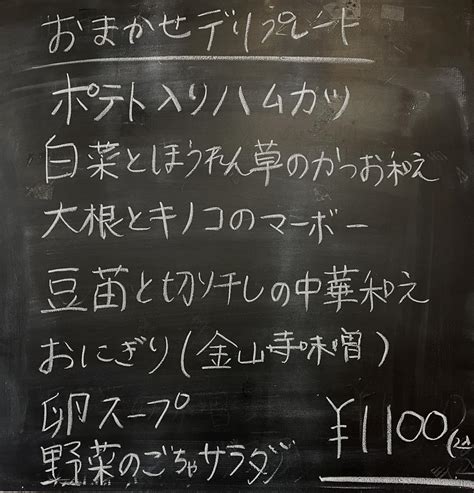 おまかせデリプレート
ポテト入りハムカツ
白菜とほうれん草のかつお和え
大根とキノコのマーボー
豆苗と切り干しの中華和え
おにぎり(金山寺味噌)
卵スープ
野菜のごちゃサラダ
¥1100